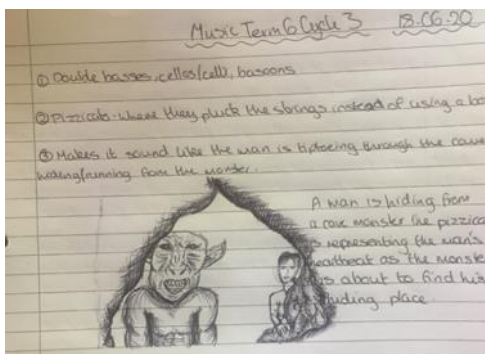 Music Term 6 Cycle 3 18.06.20
① Double basses, cellos/celli, basoons
② Pizzicato - where they pluck the strings instead of using a bo
③ Makes it sound like the man is tiptoeing through the cave
hiding/running from the monster.
A man is hiding from
a cave monster the pizzica
is representing the man's
heartbeat as the monste
is about to find his
hiding place.